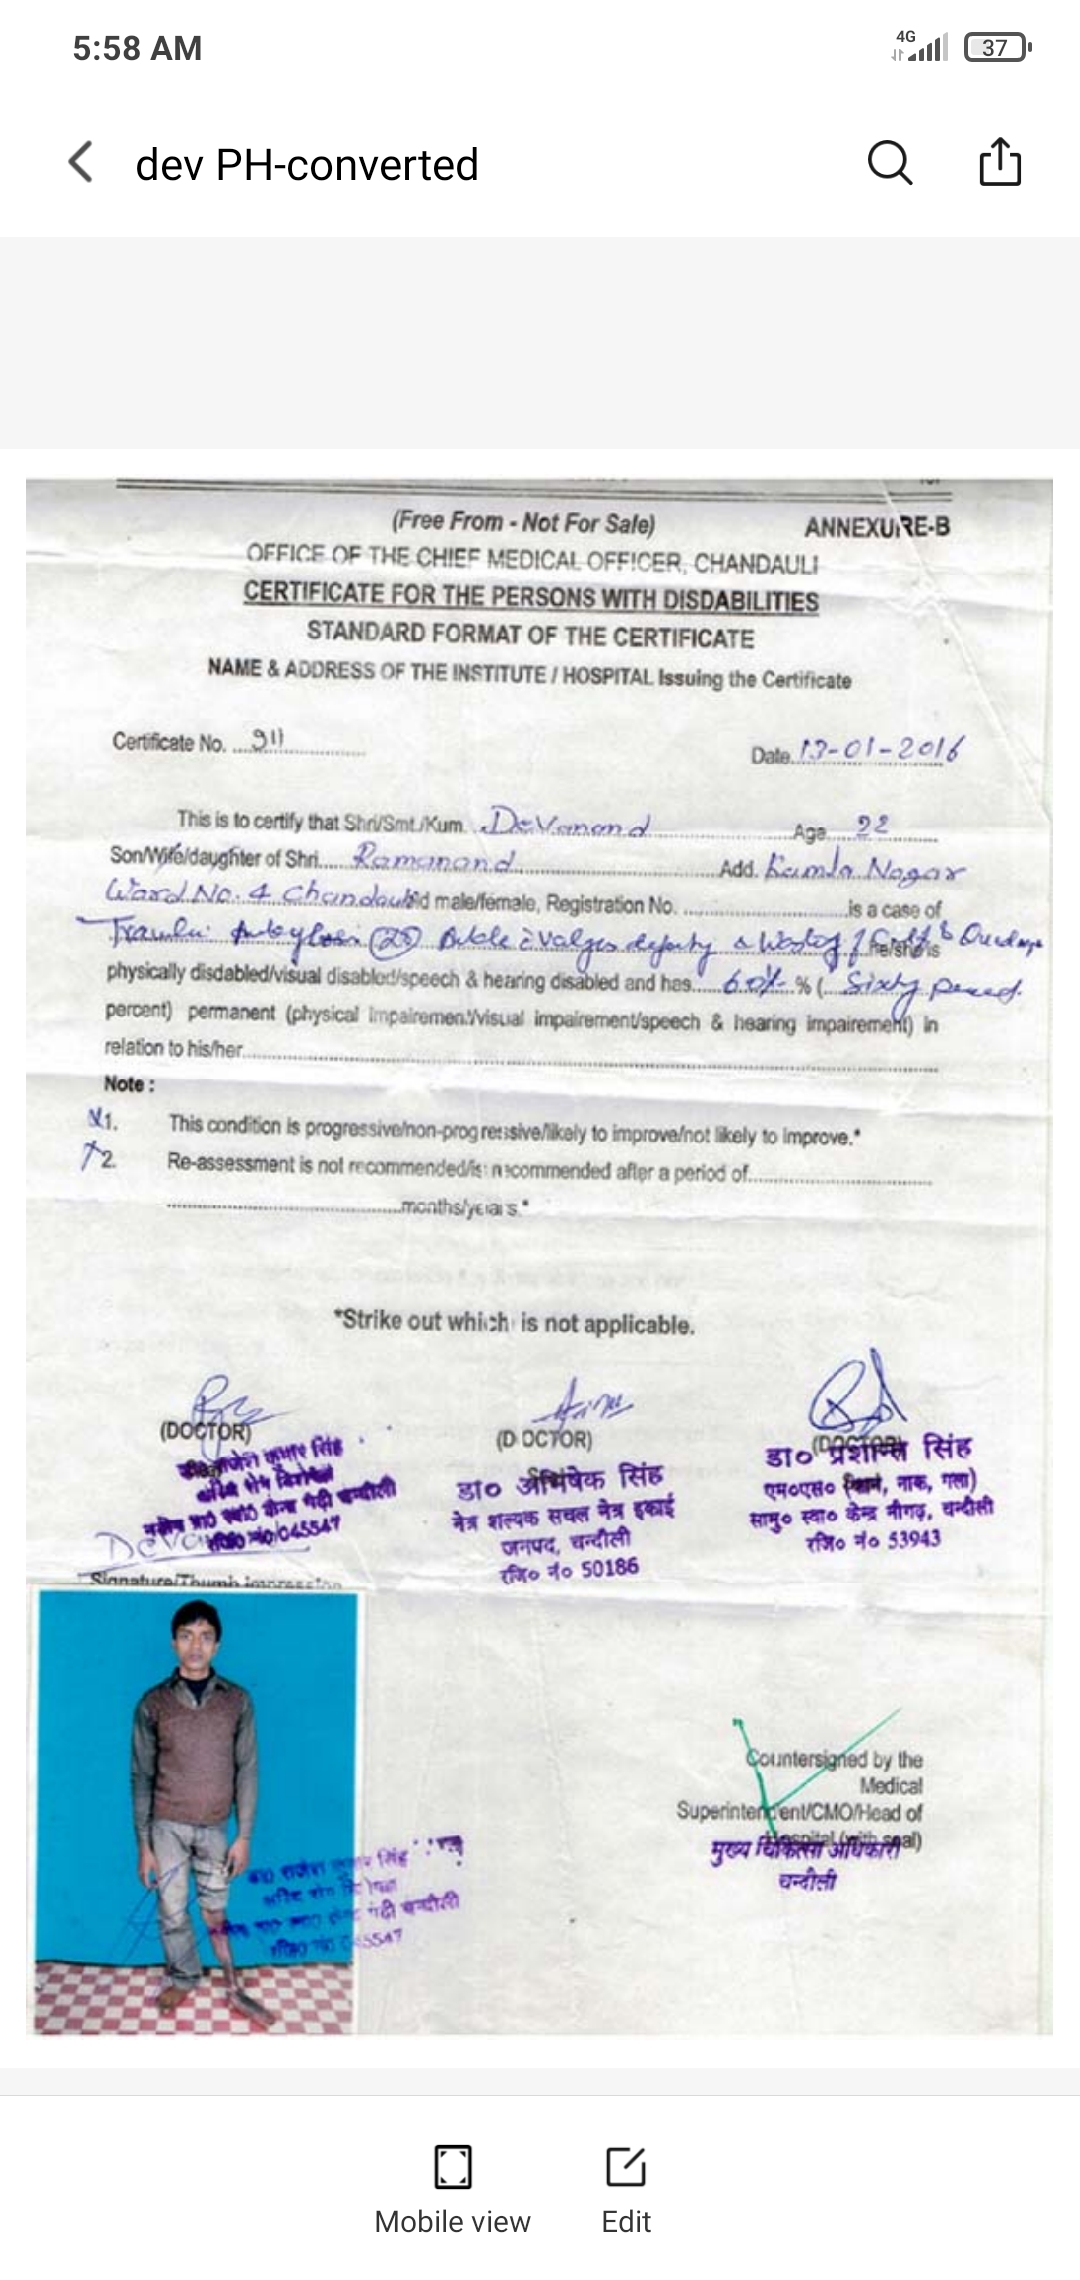 5:58 AM
4G
37
dev PH-converted
(Free From - Not For Sale)
ANNEXURE-B
OFFICE OF THE CHIEF MEDICAL OFFICER, CHANDAULI
CERTIFICATE FOR THE PERSONS WITH DISDABILITIES
STANDARD FORMAT OF THE CERTIFICATE
NAME & ADDRESS OF THE INSTITUTE / HOSPITAL Issuing the Certificate
Certificate No. 911
Date. 13-01-2016
This is to certify that Shri/Smt./Kum. Devanand Age 22
Son/Wife/daughter of Shri. Ramanand Add. Kamla Nagar
Ward No. 4 Chandauli old male/female, Registration No. is a case of
Ankle valgus & he/she is
physically disdabled/visual disabled/speech & hearing disabled and has 60% % ( Sixty
percent) permanent (physical Impairement/visual impairement/speech & hearing impairement) in
relation to his/her
Note :
1. This condition is progressive/non-progressive/likely to improve/not likely to improve.*
2. Re-assessment is not recommended/is recommended after a period of
months/years.*
*Strike out which is not applicable.
(DOCTOR)
(DOCTOR)
(DOCTOR)
डा० राजेश कुमार सिंह
चन्दौली
रजि० नं०/045547
डा० अभिषेक सिंह
नेत्र शल्यक सचल नेत्र इकाई
जनपद, चन्दौली
रजि० नं० 50186
डा० प्रशान्त सिंह
एम०एस० नाक, गला)
सामु० स्वा० केन्द्र नौगढ़, चन्दौली
रजि० नं० 53943
Signature/Thumb impression
डा० राजेश कुमार सिंह
चन्दौली
Countersigned by the
Medical
Superintendent/CMO/Head of
Hospital (with seal)
मुख्य चिकित्सा अधिकारी
चन्दौली
Mobile view
Edit